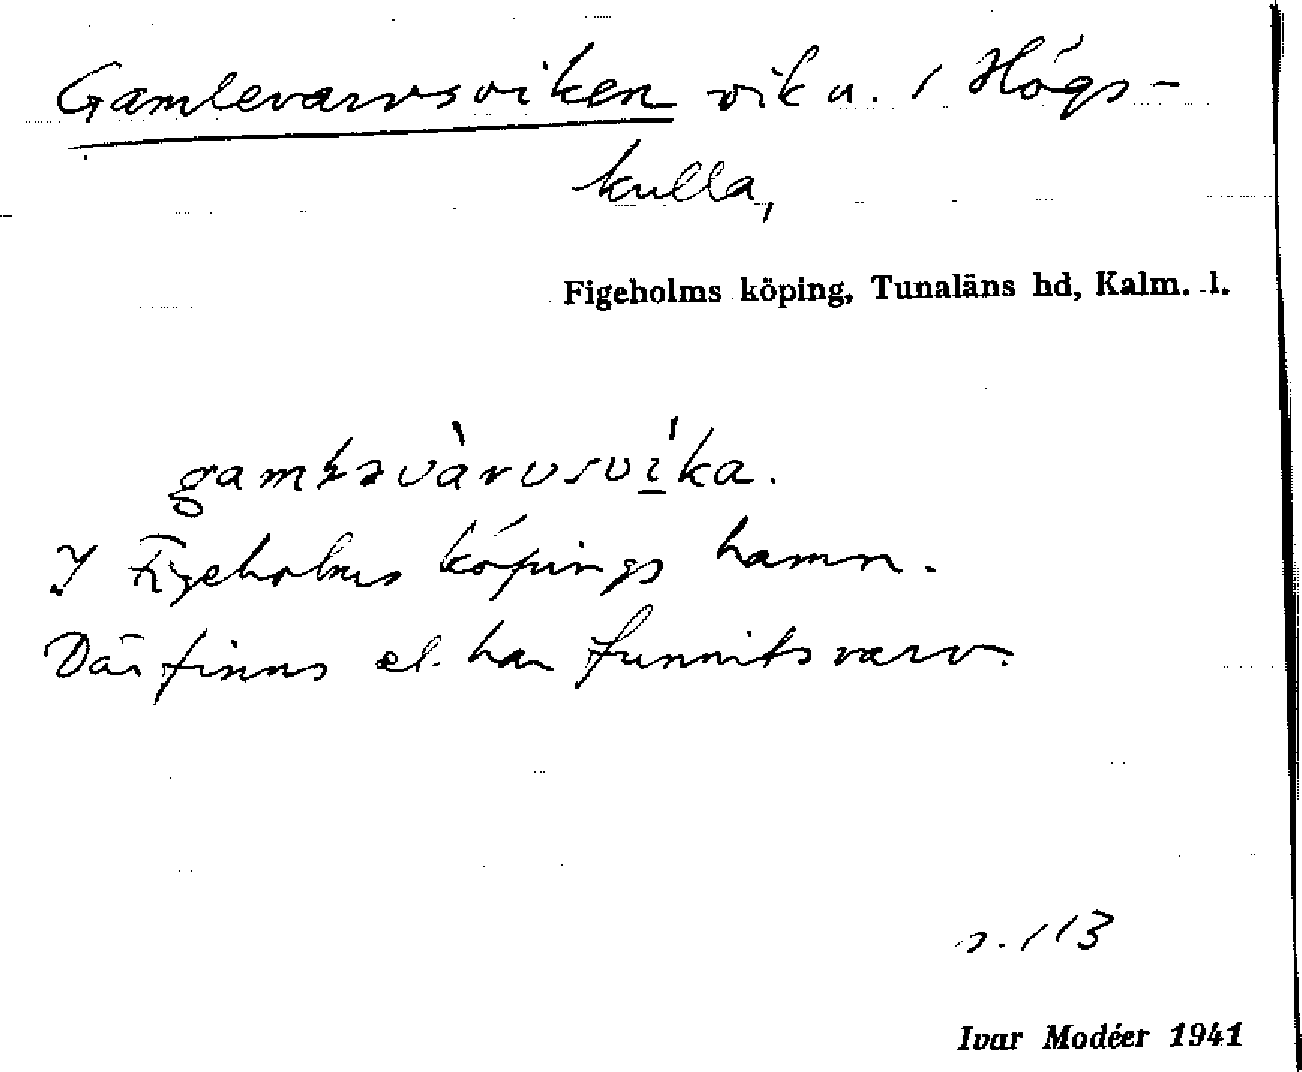 Gamlevarvsviken vik u. 1 Högs-
kulla,
Figeholms köping, Tunaläns hd, Kalm. l.
gamłəvàrvsvi̲ka.
I Figeholms köpings hamn.
Där finns el. har funnits varv.
s. 113
Ivar Modéer 1941